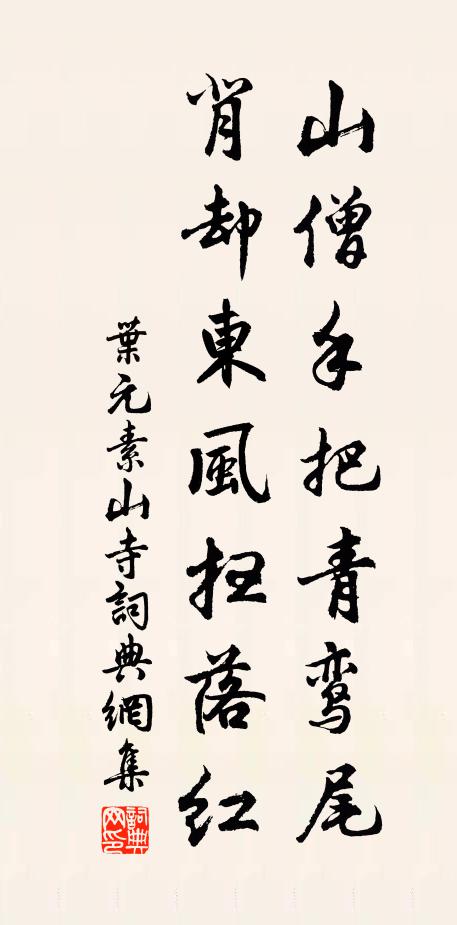 山僧手把青鸾尾
背却東風扫落红
葉元素山寺詞典網集
詞典网印